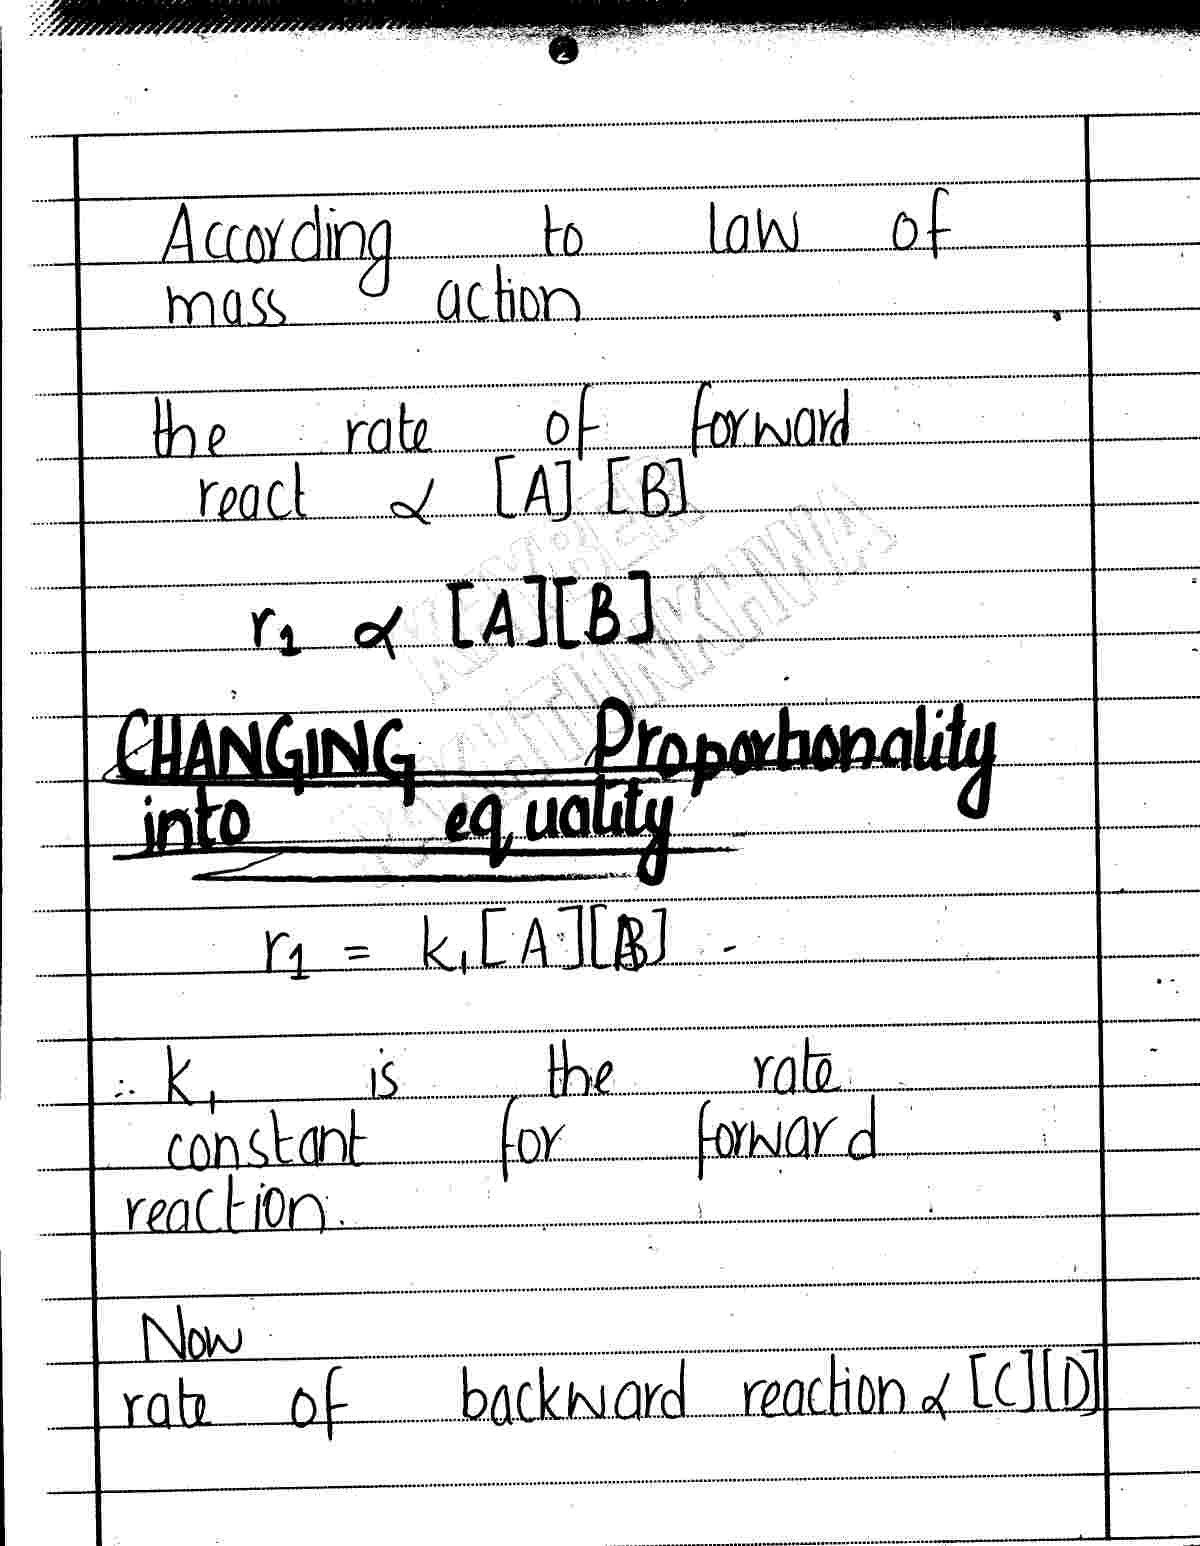 2
According to law of
mass action
the rate of forward
react ∝ [A] [B]
KHYBER
PAKHTUNKHWA
r₁ ∝ [A][B]
CHANGING Proportionality
into equality
r₁ = k₁[A][B]
∴ K₁ is the rate
constant for forward
reaction.
Now
rate of backward reaction ∝ [C][D]